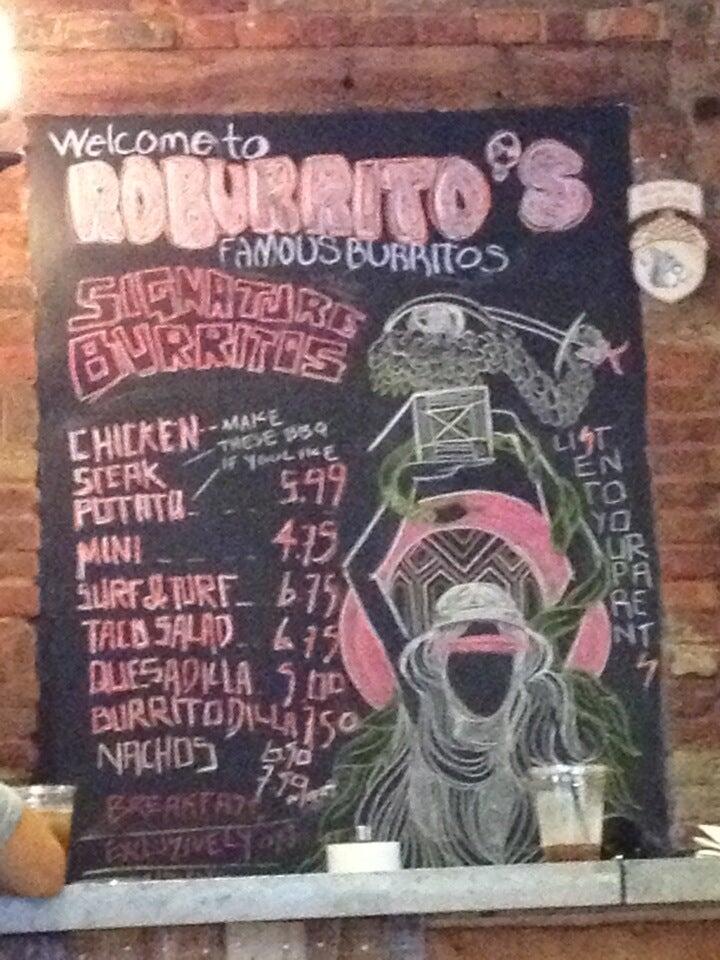 Welcome to
ROBURRITO'S
FAMOUS BURRITOS
SIGNATURE
BURRITOS
CHICKEN
MAKE
THESE BBQ
IF YOU LIKE
STEAK
POTATO 5.99
MINI 4.75
SURF & TURF 6.75
TACO SALAD 6.75
QUESADILLA 5.00
BURRITODILLA 7.50
NACHOS
7.79
BREAKFAST
EXCLUSIVELY
LIST
EN
TO
YOUR
PARENTS